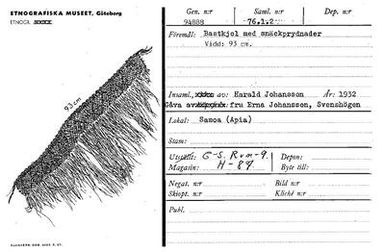 ETNOGRAFISKA MUSEET, Göteborg
ETNOGR.
93 cm
Gen. n:r
94888
Saml. n:r
76.1.2
Dep. n:r
Föremål: Bastkjol med snäckprydnader
Vidd: 93 cm.
Insaml. av: Harald Johansson År: 1932
Gåva av fru Erna Johansson, Svenshögen
Lokal: Samoa (Apia)
Stam:
Utställt: G-S. Rum-9.
Magasin: H-89.
Depon:
Byte till:
Negat. n:r
Skiopt. n:r
Bild n:r
Kliché n:r
Publ.